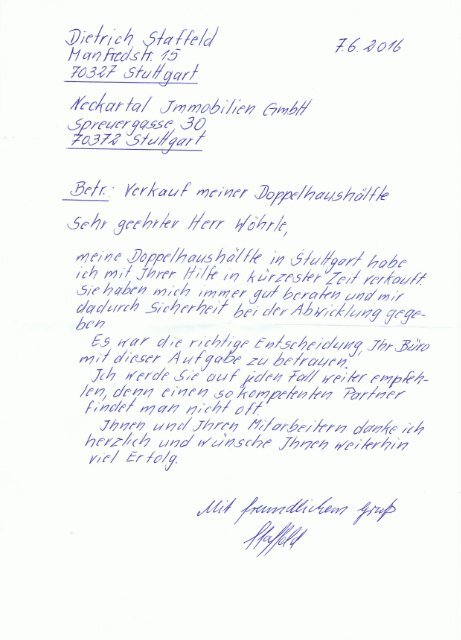 Dietrich Staffeld
Manfredstr. 15
70327 Stuttgart
7.6.2016
Neckartal Immobilien GmbH
Spreuergasse 30
70372 Stuttgart
Betr.: Verkauf meiner Doppelhaushälfte
Sehr geehrter Herr Wöhrle,
meine Doppelhaushälfte in Stuttgart habe
ich mit Ihrer Hilfe in kürzester Zeit verkauft.
Sie haben mich immer gut beraten und mir
dadurch Sicherheit bei der Abwicklung gege-
ben.
Es war die richtige Entscheidung, Ihr Büro
mit dieser Aufgabe zu betrauen.
Ich werde Sie auf jeden Fall weiter empfeh-
len, denn einen so kompetenten Partner
findet man nicht oft.
Ihnen und Ihren Mitarbeitern danke ich
herzlich und wünsche Ihnen weiterhin
viel Erfolg.
Mit freundlichem Gruß
Staffeld